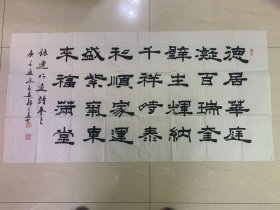 德居華庭
凝百瑞奎
壁生輝納
千祥時泰
和順家運
盛紫氣東
來福滿堂